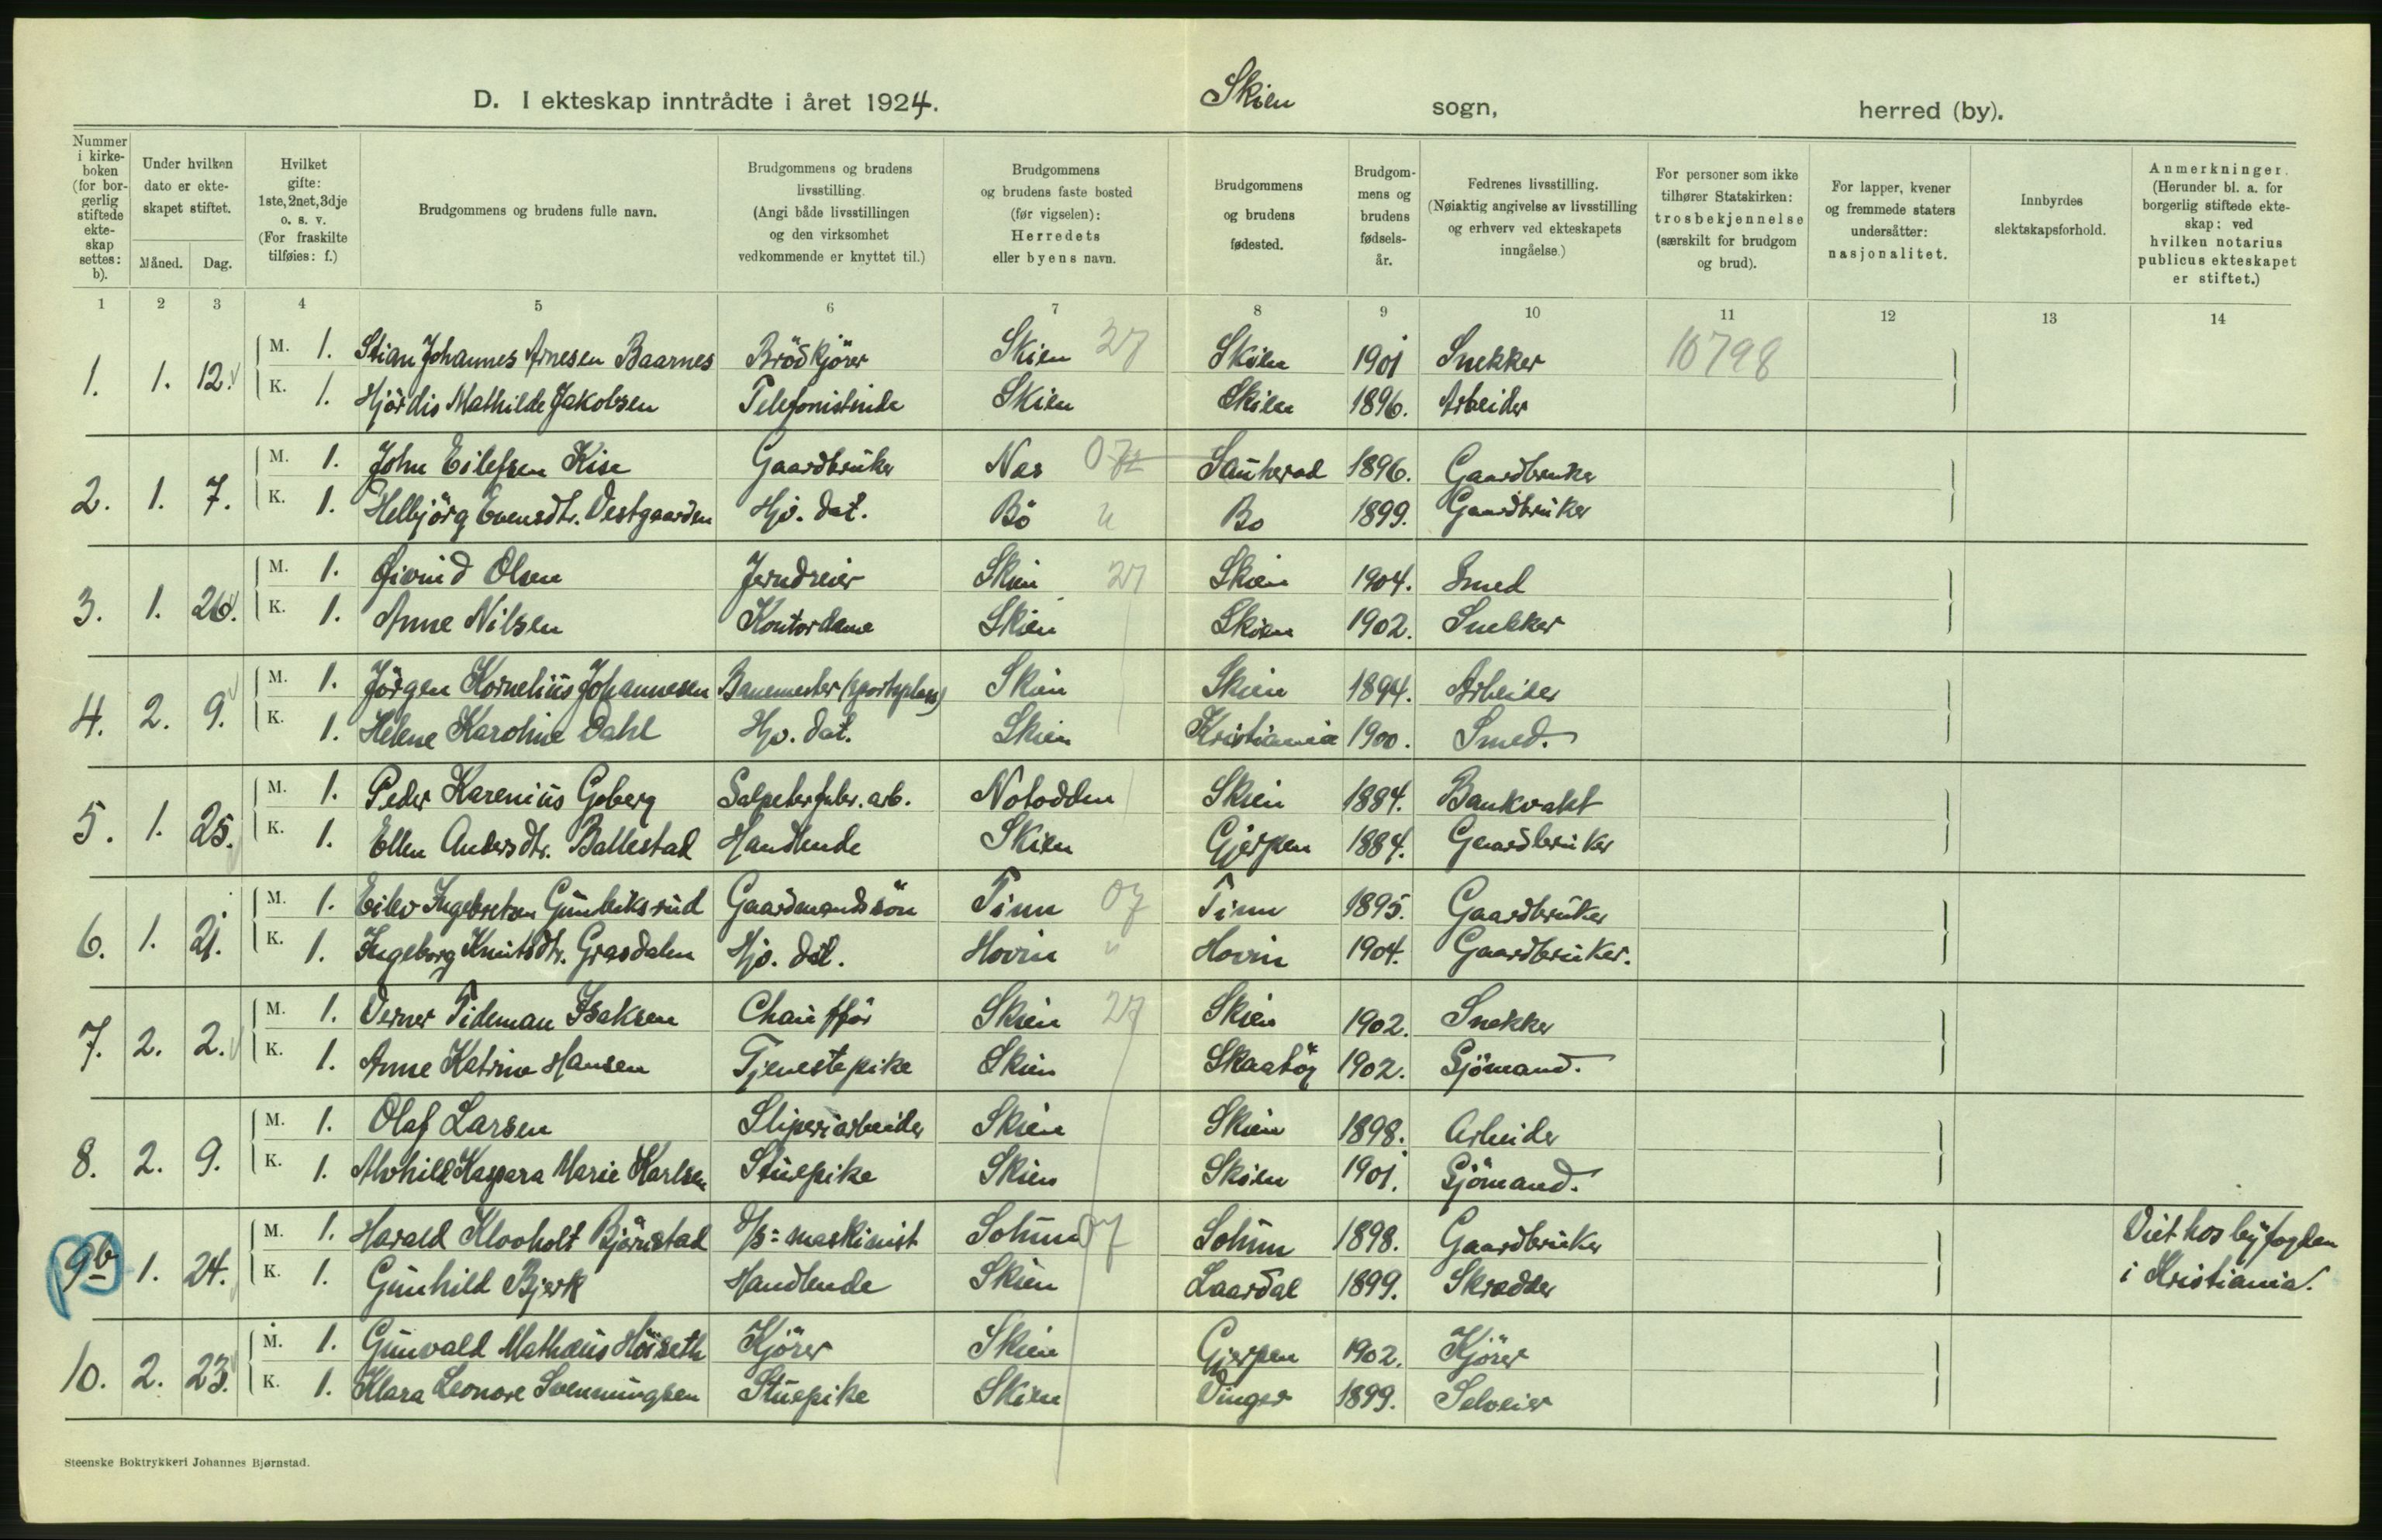 D. I ekteskap inntrådte i året 1924. Skien sogn, herred (by).
Nummer i kirkeboken (for borgerlig stiftede ekteskap settes: b). Under hvilken dato er ekteskapet stiftet. Måned. Dag. Hvilket gifte: 1ste, 2net, 3dje o. s. v. (For fraskilte tilføies: f.) Brudgommens og brudens fulle navn. Brudgommens og brudens livsstilling. (Angi både livsstillingen og den virksomhet vedkommende er knyttet til.) Brudgommens og brudens faste bosted (før vigselen): Herredets eller byens navn. Brudgommens og brudens fødested. Brudgommens og brudens fødselsår. Fedrenes livsstilling. (Nøiaktig angivelse av livsstilling og erhverv ved ekteskapets inngåelse.) For personer som ikke tilhører Statskirken: trosbekjennelse (særskilt for brudgom og brud). For lapper, kvener og fremmede staters undersåtter: nasjonalitet. Innbyrdes slektskapsforhold. Anmerkninger. (Herunder bl. a. for borgerlig stiftede ekteskap: ved hvilken notarius publicus ekteskapet er stiftet.)
1 2 3 4 5 6 7 8 9 10 11 12 13 14
1. 1. 12. M. 1. Stian Johannes Arnesen Baarnes Brödkjörer Skien 27 Skien 1901 Snekker 10798
K. 1. Hjördis Mathilde Jakobsen Telefonistinde Skien Skien 1896. Arbeider
2. 1. 7. M. 1. John Eilefsen Kise Gaardbruker Nes 07 Sauherad 1896. Gaardbruker
K. 1. Helbjörg Evensdtr. Vestgaarden Hjv. dat. Bö Bø 1899. Gaardbruker
3. 1. 26. M. 1. Øivind Olsen Jerndreier Skien 27 Skien 1904. Smed
K. 1. Anne Nilsen Kontordame Skien Skien 1902. Snekker
4. 2. 9. M. 1. Jörgen Kornelius Johannesen Banemester (sportsplass) Skien Skien 1894. Arbeider
K. 1. Helene Karoline Dahl Hjv. dat. Skien Kristiania 1900. Smed.
5. 1. 25. M. 1. Peder Karenius Goberg Salpeterfabr. arb. Notodden Skien 1884. Bankvakt
K. 1. Ellen Andersdtr. Ballestad Handlende Skien Gjerpen 1884. Gaardbruker
6. 1. 21. M. 1. Eilev Ingebretsen Gunleiksrud Gaardmandssön Tinn 07 Tinn 1895. Gaardbruker
K. 1. Ingeborg Knutsdtr. Grasdalen Hjv. dat. Hovin " Hovin 1904. Gaardbruker.
7. 2. 2. M. 1. Verner Tideman Isaksen Chauffför Skien 27 Skien 1902. Snekker
K. 1. Anne Katrine Hansen Tjenestepike Skien Skaatöy 1902. Sjömand.
8. 2. 9. M. 1. Olaf Larsen Sliperiarbeider Skien Skien 1898. Arbeider
K. 1. Alvhild Kaspara Marie Karlsen Stuepike Skien Skien 1901. Sjömand.
9b 1. 24. M. 1. Harald Klovholt Björnstad D/s: maskinist Solum 07 Solum 1898. Gaardbruker Viet hos byfogden
K. 1. Gunhild Bjerk Handlende Skien Laardal 1899. Skrædder i Kristiania.
10. 2. 23. M. 1. Gunvald Mathæus Höiseth Kjörer Skien Gjerpen 1902. Kjörer
K. 1. Klara Leonore Svenningsen Stuepike Skien Vinger 1899. Selveier
Steenske Boktrykkeri Johannes Bjørnstad.